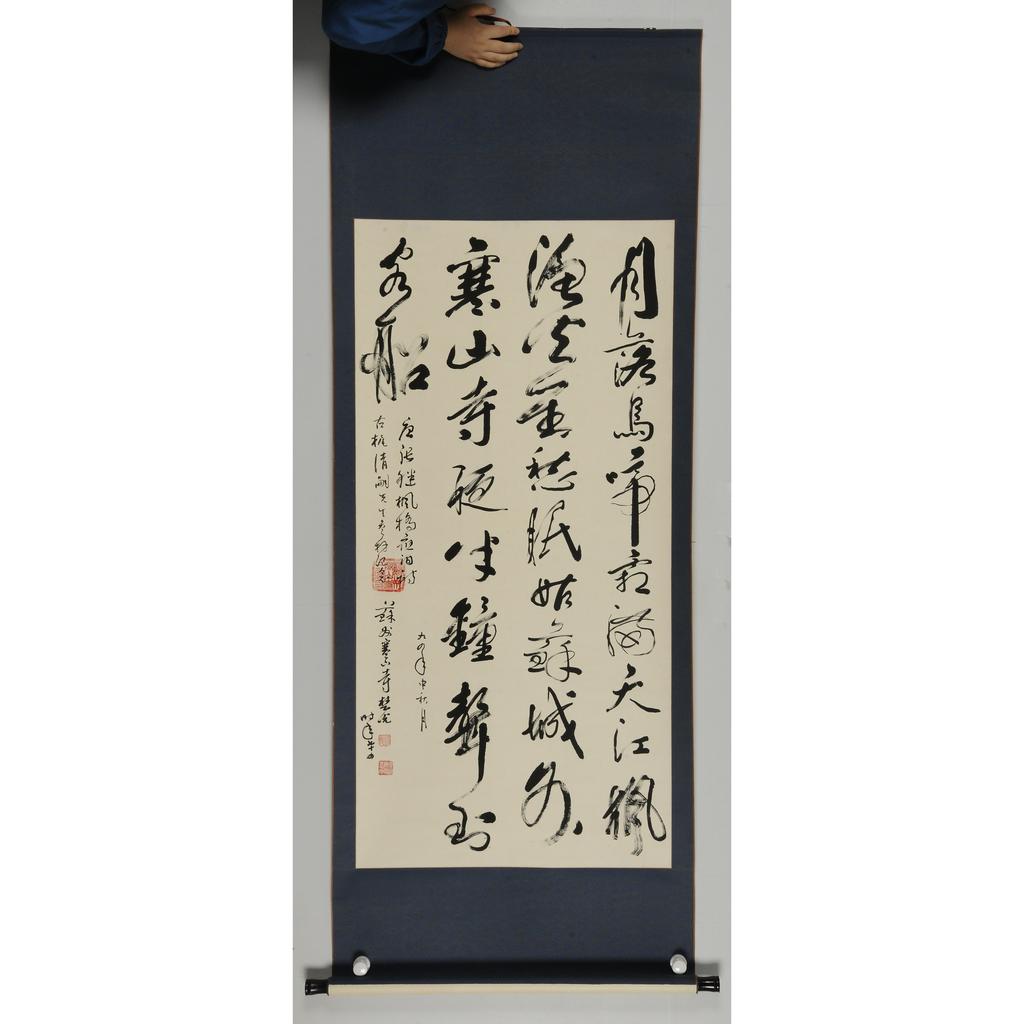 月落烏啼霜滿天江楓
漁火對愁眠姑蘇城外
寒山寺夜半鐘聲到
客船
唐張繼楓橋夜泊詩
九四年中秋月
古梶清嗣先生
蘇州寒山寺楚光
時年